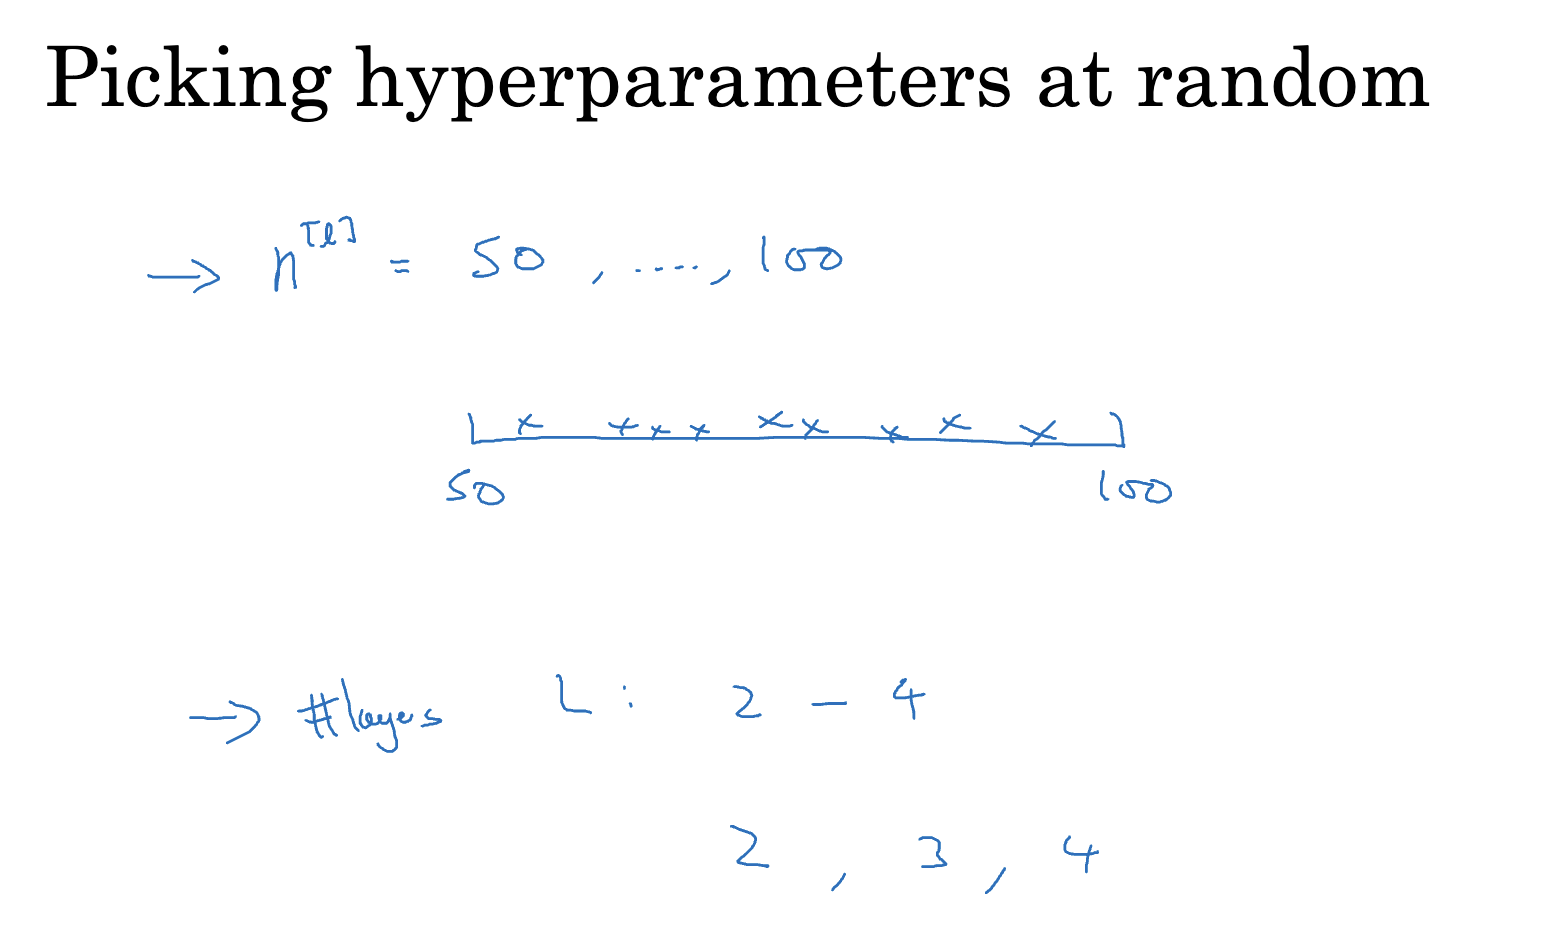 Picking hyperparameters at random
→ n^[l] = 50, ...., 100
x x x x x x x x x
50 100
→ #layers L : 2 - 4
2, 3, 4